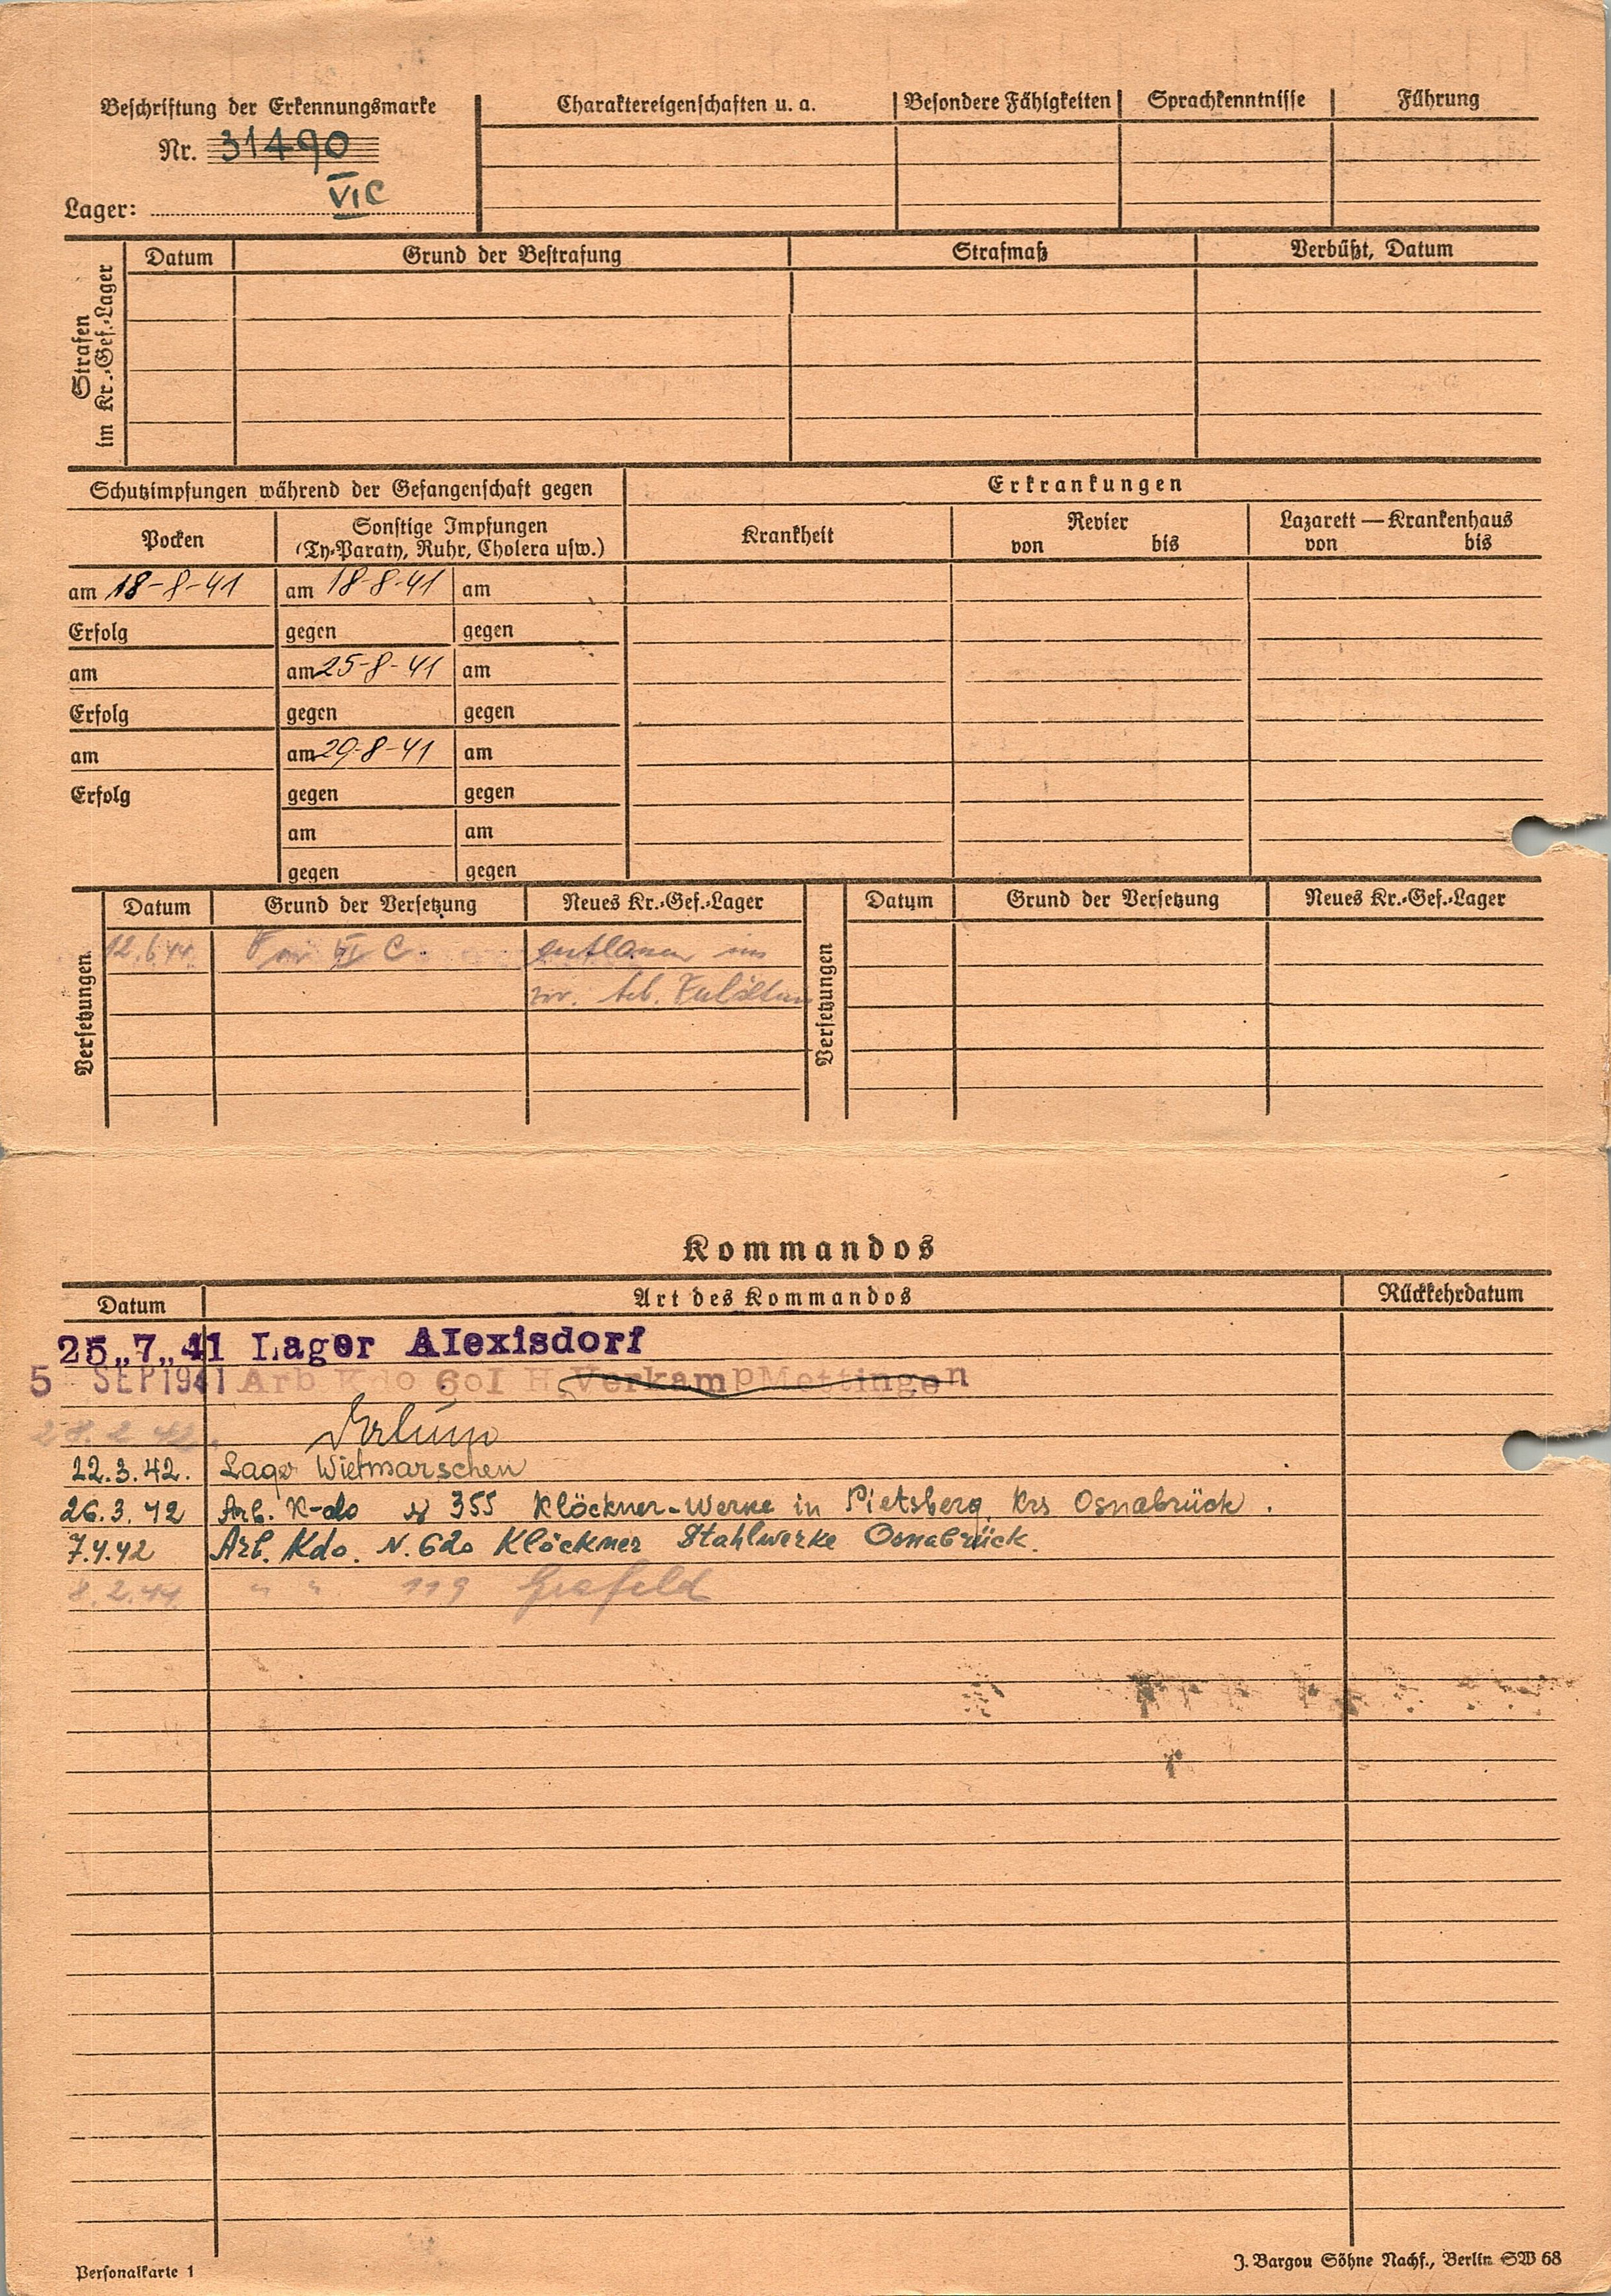 Beschriftung der Erkennungsmarke
Nr. 31490
Lager: VI C
Charaktereigenschaften u. a. Besondere Fähigkeiten Sprachkenntnisse Führung
Strafen
im Kr.-Gef.-Lager
Datum Grund der Bestrafung Strafmaß Verbüßt, Datum
Schutzimpfungen während der Gefangenschaft gegen
Erkrankungen
Pocken
Sonstige Impfungen
(Ty-Paraty, Ruhr, Cholera usw.)
Krankheit
Revier
von bis
Lazarett — Krankenhaus
von bis
am 18-8-41 am 18-8-41 am
Erfolg gegen gegen
am am 25-8-41 am
Erfolg gegen gegen
am am 29-8-41 am
Erfolg gegen gegen
am am
gegen gegen
Versetzungen
Datum Grund der Versetzung Neues Kr.-Gef.-Lager
12.6.44 VI C. entlassen ins
Versetzungen
Datum Grund der Versetzung Neues Kr.-Gef.-Lager
Kommandos
Datum Art des Kommandos Rückkehrdatum
25.,7.,41 Lager Alexisdorf
5 SEP 1941 Arb Kdo 601 H. Verkamp Mettingen
28.2.42.
22.3.42. Lager Wietmarschen
26.3.42 Arb. K-do № 355 Klöckner-Werke in Pietsberg, Krs Osnabrück.
7.4.42 Arb. Kdo. N. 620 Klöckner Stahlwerke Osnabrück.
8.2.44 " " 119 Grafeld
Personalkarte 1
J. Bargou Söhne Nachf., Berlin SW 68